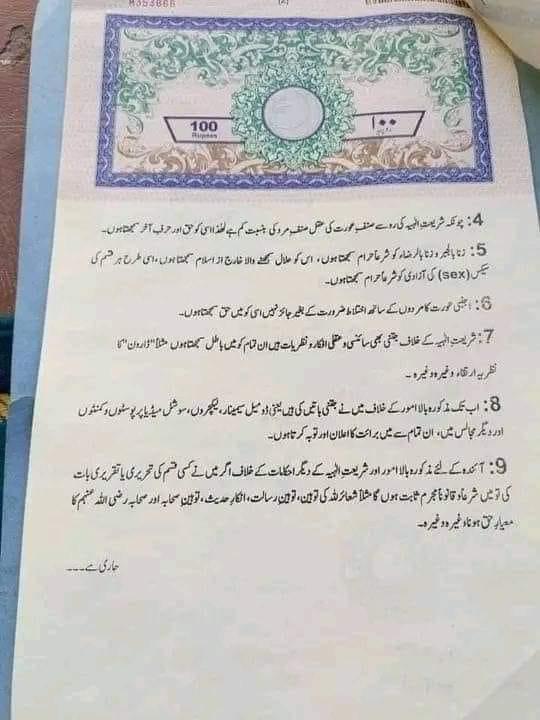 M353866
(2)
100
Rupees
۱۰۰
روپیہ
4: چونکہ شریعتِ الٰہیہ کی رو سے صنفِ عورت کی عقل صنفِ مرد کی بنسبت کم ہے لھٰذا اسی کو حق اور حرفِ آخر سمجھتا ہوں۔
5: زنا بالجبر و زنا بالرضاء کو شرعاً حرام سمجھتا ہوں، اس کو حلال سمجھنے والا خارج از اسلام سمجھتا ہوں، اسی طرح ہر قسم کی
سیکس (sex) کی آزادی کو شرعاً حرام سمجھتا ہوں۔
6: اجنبی عورت کا مردوں کے ساتھ اختلاط ضرورت کے بغیر جائز نہیں اسی کو میں حق سمجھتا ہوں۔
7: شریعتِ الٰہیہ کے خلاف جتنی بھی سائنسی و عقلی افکار و نظریات ہیں ان تمام کو میں باطل سمجھتا ہوں مثلاً "ڈارون" کا
نظریہ ارتقاء وغیرہ وغیرہ ۔
8: اب تک مذکورہ بالا امور کے خلاف میں نے جتنی باتیں کی ہیں یعنی ڈومیل سیمینار، لیکچروں، سوشل میڈیا پر پوسٹوں و کمنٹوں
اور دیگر مجالس میں، ان تمام سے میں برائت کا اعلان اور توبہ کرتا ہوں۔
9: آئندہ کے لئے مذکورہ بالا امور اور شریعتِ الٰہیہ کے دیگر احکامات کے خلاف اگر میں نے کسی قسم کی تحریری یا تقریری بات
کی تو میں شرعاً و قانوناً مجرم ثابت ہوں گا مثلاً شعائر اللہ کی توہین، توہینِ رسالت، انکارِ حدیث، توہینِ صحابہ اور صحابہ رضی اللہ عنہم کا
معیارِ حق ہونا وغیرہ وغیرہ۔
جاری ہے۔۔۔